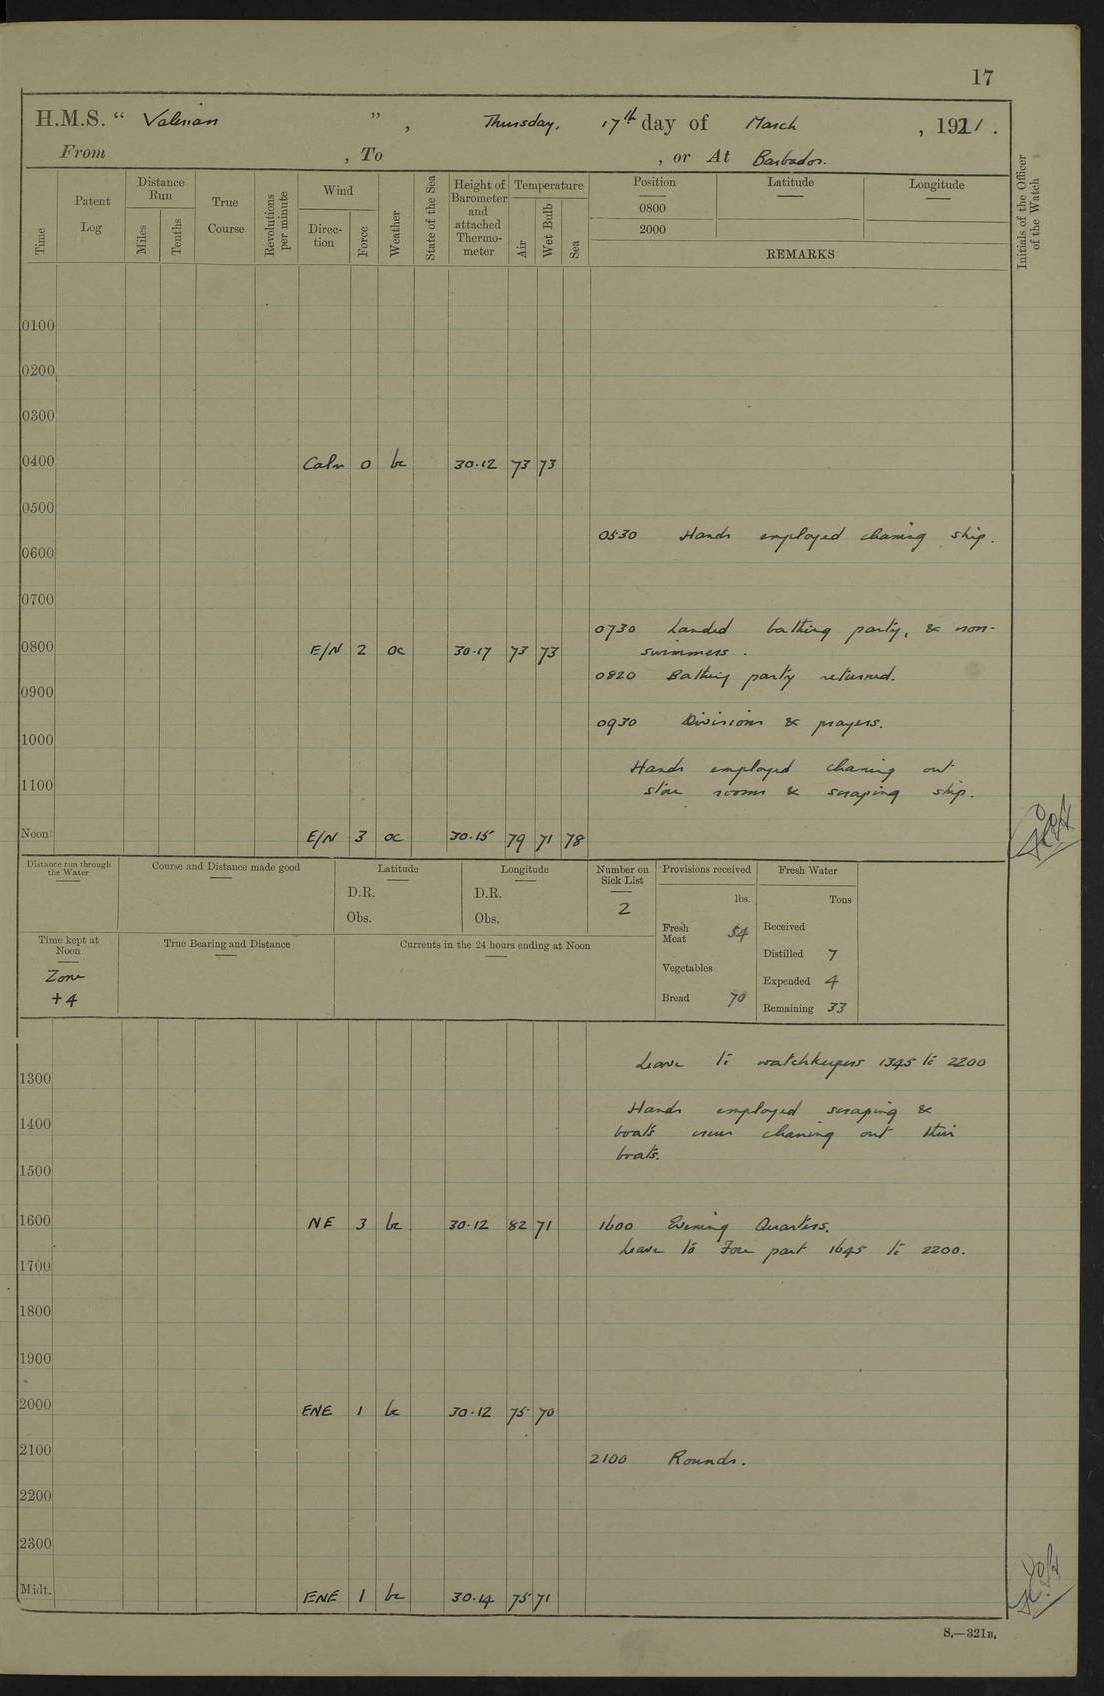 17
H.M.S. “ Valerian ” , Thursday, 17th day of March , 1921.
From , To , or At Barbados.
Time
Patent Log
Distance Run
Miles
Tenths
True Course
Revolutions per minute
Wind
Direction
Force
Weather
State of the Sea
Height of Barometer and attached Thermometer
Temperature
Air
Wet Bulb
Sea
Position
0800
2000
Latitude
Longitude
REMARKS
Initials of the Officer of the Watch
0100
0200
0300
0400 Calm 0 bc 30·12 73 73
0500
0530 Hands employed cleaning ship.
0600
0700
0730 Landed bathing party, & non-
swimmers.
0800 E/N 2 oc 30·17 73 73
0820 Bathing party returned.
0900
0930 Divisions & prayers.
1000
Hands employed cleaning out
1100
store rooms & scraping ship.
Noon E/N 3 oc 30·15 79 71 78
Distance run through the Water
Course and Distance made good
Latitude
D.R.
Obs.
Longitude
D.R.
Obs.
Number on Sick List
2
Provisions received
lbs.
Fresh Meat 54
Vegetables
Bread 70
Fresh Water
Tons
Received
Distilled 7
Expended 4
Remaining 33
Time kept at Noon
Zone
+4
True Bearing and Distance
Currents in the 24 hours ending at Noon
Leave to watchkeepers 1345 to 2200
1300
Hands employed scraping &
1400
boats crews cleaning out their
boats.
1500
1600 NE 3 bc 30·12 82 71 1600 Evening Quarters.
Leave to Fore part 1645 to 2200.
1700
1800
1900
2000 ENE 1 bc 30·12 75 70
2100
2100 Rounds.
2200
2300
Midt. ENE 1 bc 30·14 75 71
S.—321B.